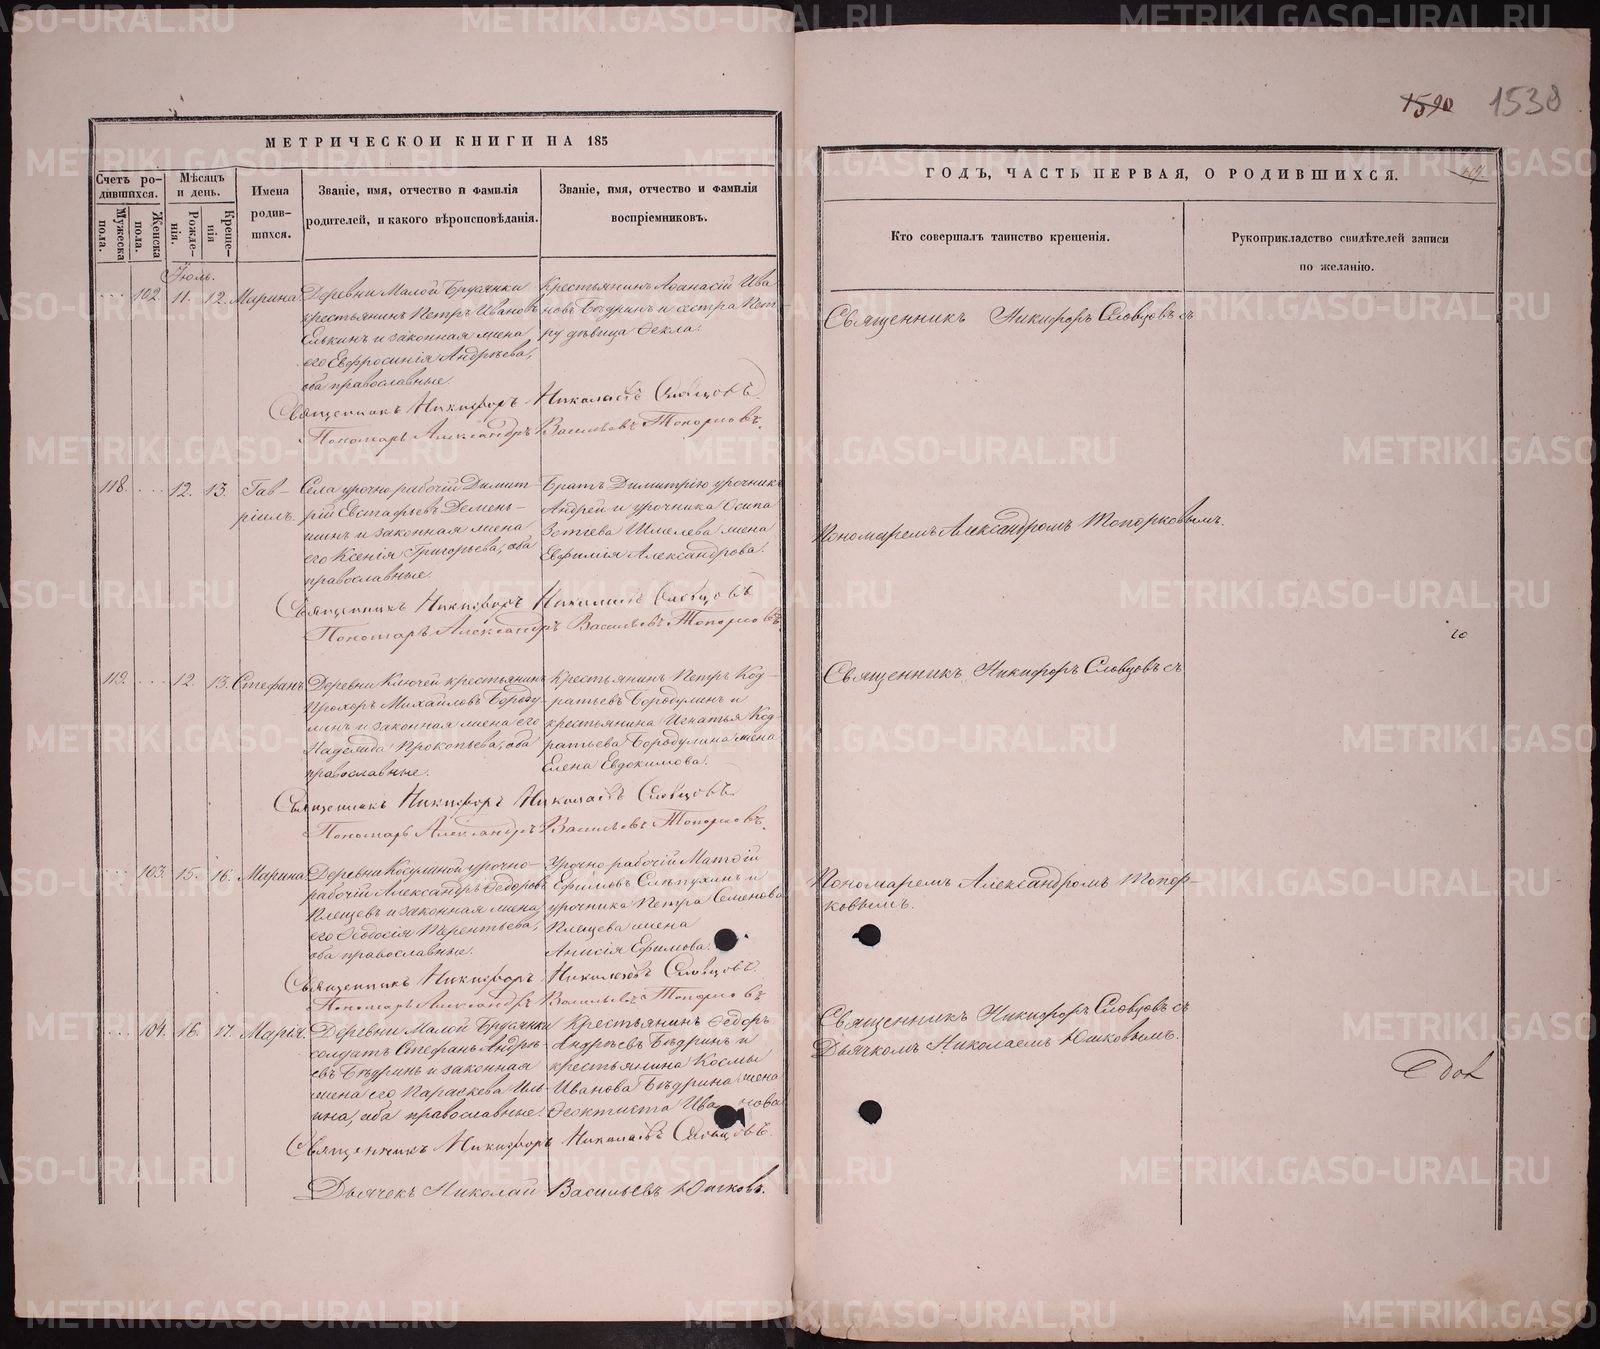 МЕТРИЧЕСКОИ КНИГИ НА 185
Счетъ ро-
дившихся.
Мѣсяцъ
и день.
Мужеска
пола.
Женска
пола.
Рожде-
нія.
Креще-
нія
Имена
родив-
шихся.
Званіе, имя, отчество и фамилія
родителей, и какого вѣроисповѣданія.
Званіе, имя, отчество и фамилія
воспріемниковъ.
Іюль.
102. 11. 12. Марина.
Деревни Малой Брусянки
крестьянинъ Петръ Ивановъ
Елькинъ и законная жена
его Евфросинія Андрѣева,
оба православные.
Крестьянинъ Аѳанасій Ива
новъ Бѣдринъ и сестра Пет
ру дѣвица Ѳекла.
Священникъ Никифоръ Николаевъ Словцовъ.
Пономарь Александръ Васильевъ Топорковъ.
118. 12. 13. Гав-
ріилъ.
Села урочно рабочій Димит-
рій Евстафьевъ Демень-
шинъ и законная жена
его Ксенія Григорьева, оба
православные.
Братъ Димитрію урочникъ
Андрей и урочника Осипа
Зотеева Шмелева жена
Евфимія Александрова.
Священникъ Никифоръ Николаевъ Словцовъ
Пономарь Александръ Васильевъ Топорковъ.
119. 12. 13. Стефанъ.
Деревни Ключей крестьянинъ
Прохоръ Михайловъ Бороду-
линъ и законная жена его
Надежда Прокопьева, оба
православные.
Крестьянинъ Петръ Код-
ратьевъ Бородулинъ и
крестьянина Игнатья Код
ратьева Бородулина жена
Елена Евдокимова.
Священникъ Никифоръ Николаевъ Словцовъ.
Пономарь Александръ Васильевъ Топорковъ.
103. 15. 16. Марина.
Деревни Косулиной урочно-
рабочій Александръ Ѳедоровъ
Плещевъ и законная жена
его Ѳеодосія Терентьева,
оба православные.
Урочно рабочій Матѳій
Ефимовъ Слѣпухинъ и
урочника Петра Семенова
Плещева жена
Анисія Ефимова.
Священникъ Никифоръ Николаевъ Словцовъ.
Пономарь Александръ Васильевъ Топорковъ
104. 16. 17. Марія.
Деревни Малой Брусянки
солдатъ Стефанъ Андрѣ-
евъ Бѣдринъ и законная
жена его Параскева Иль-
ина, оба православные.
Крестьянинъ Ѳедоръ
Андрѣевъ Бѣдринъ и
крестьянина Космы
Иванова Бѣдрина жена
Ѳеоктиста Иванова.
Священникъ Никифоръ Николаевъ Словцовъ.
Дьячекъ Николай Васильевъ Юшковъ.
1590 1538
ГОДЪ, ЧАСТЬ ПЕРВАЯ, О РОДИВШИХСЯ.
Кто совершалъ таинство крещенія.
Рукоприкладство свидѣтелей записи
по желанію.
Священникъ Никифоръ Словцовъ съ
Пономаремъ Александромъ Топорковымъ.
Священникъ Никифоръ Словцовъ съ
Пономаремъ Александромъ Топор-
ковымъ.
Священникъ Никифоръ Словцовъ съ
Дьячкомъ Николаемъ Юшковымъ.
METRIKI.GASO-URAL.RU